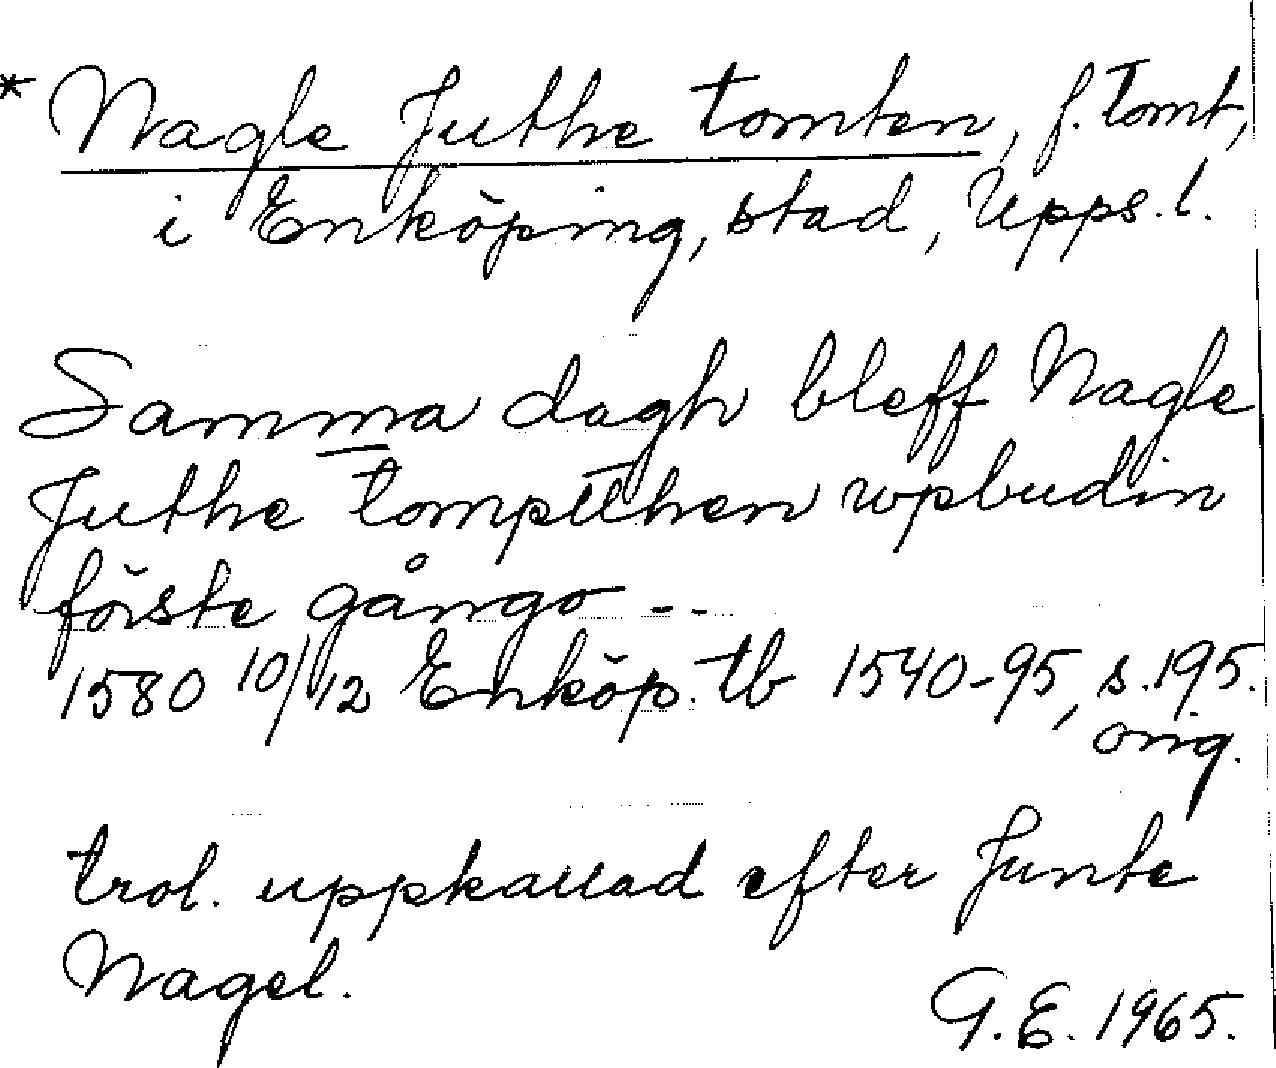 * Nagle Juthe tomten, f. tomt,
i Enköping, stad, Upps. l.
Samma dagh bleff Nagle
Juthe tomptthen wpbudin
förste gångo --
1580 10/12 Enköp. tb 1540-95, s. 195.
orig.
trol. uppkallad efter Junte
Nagel.
G.E. 1965.